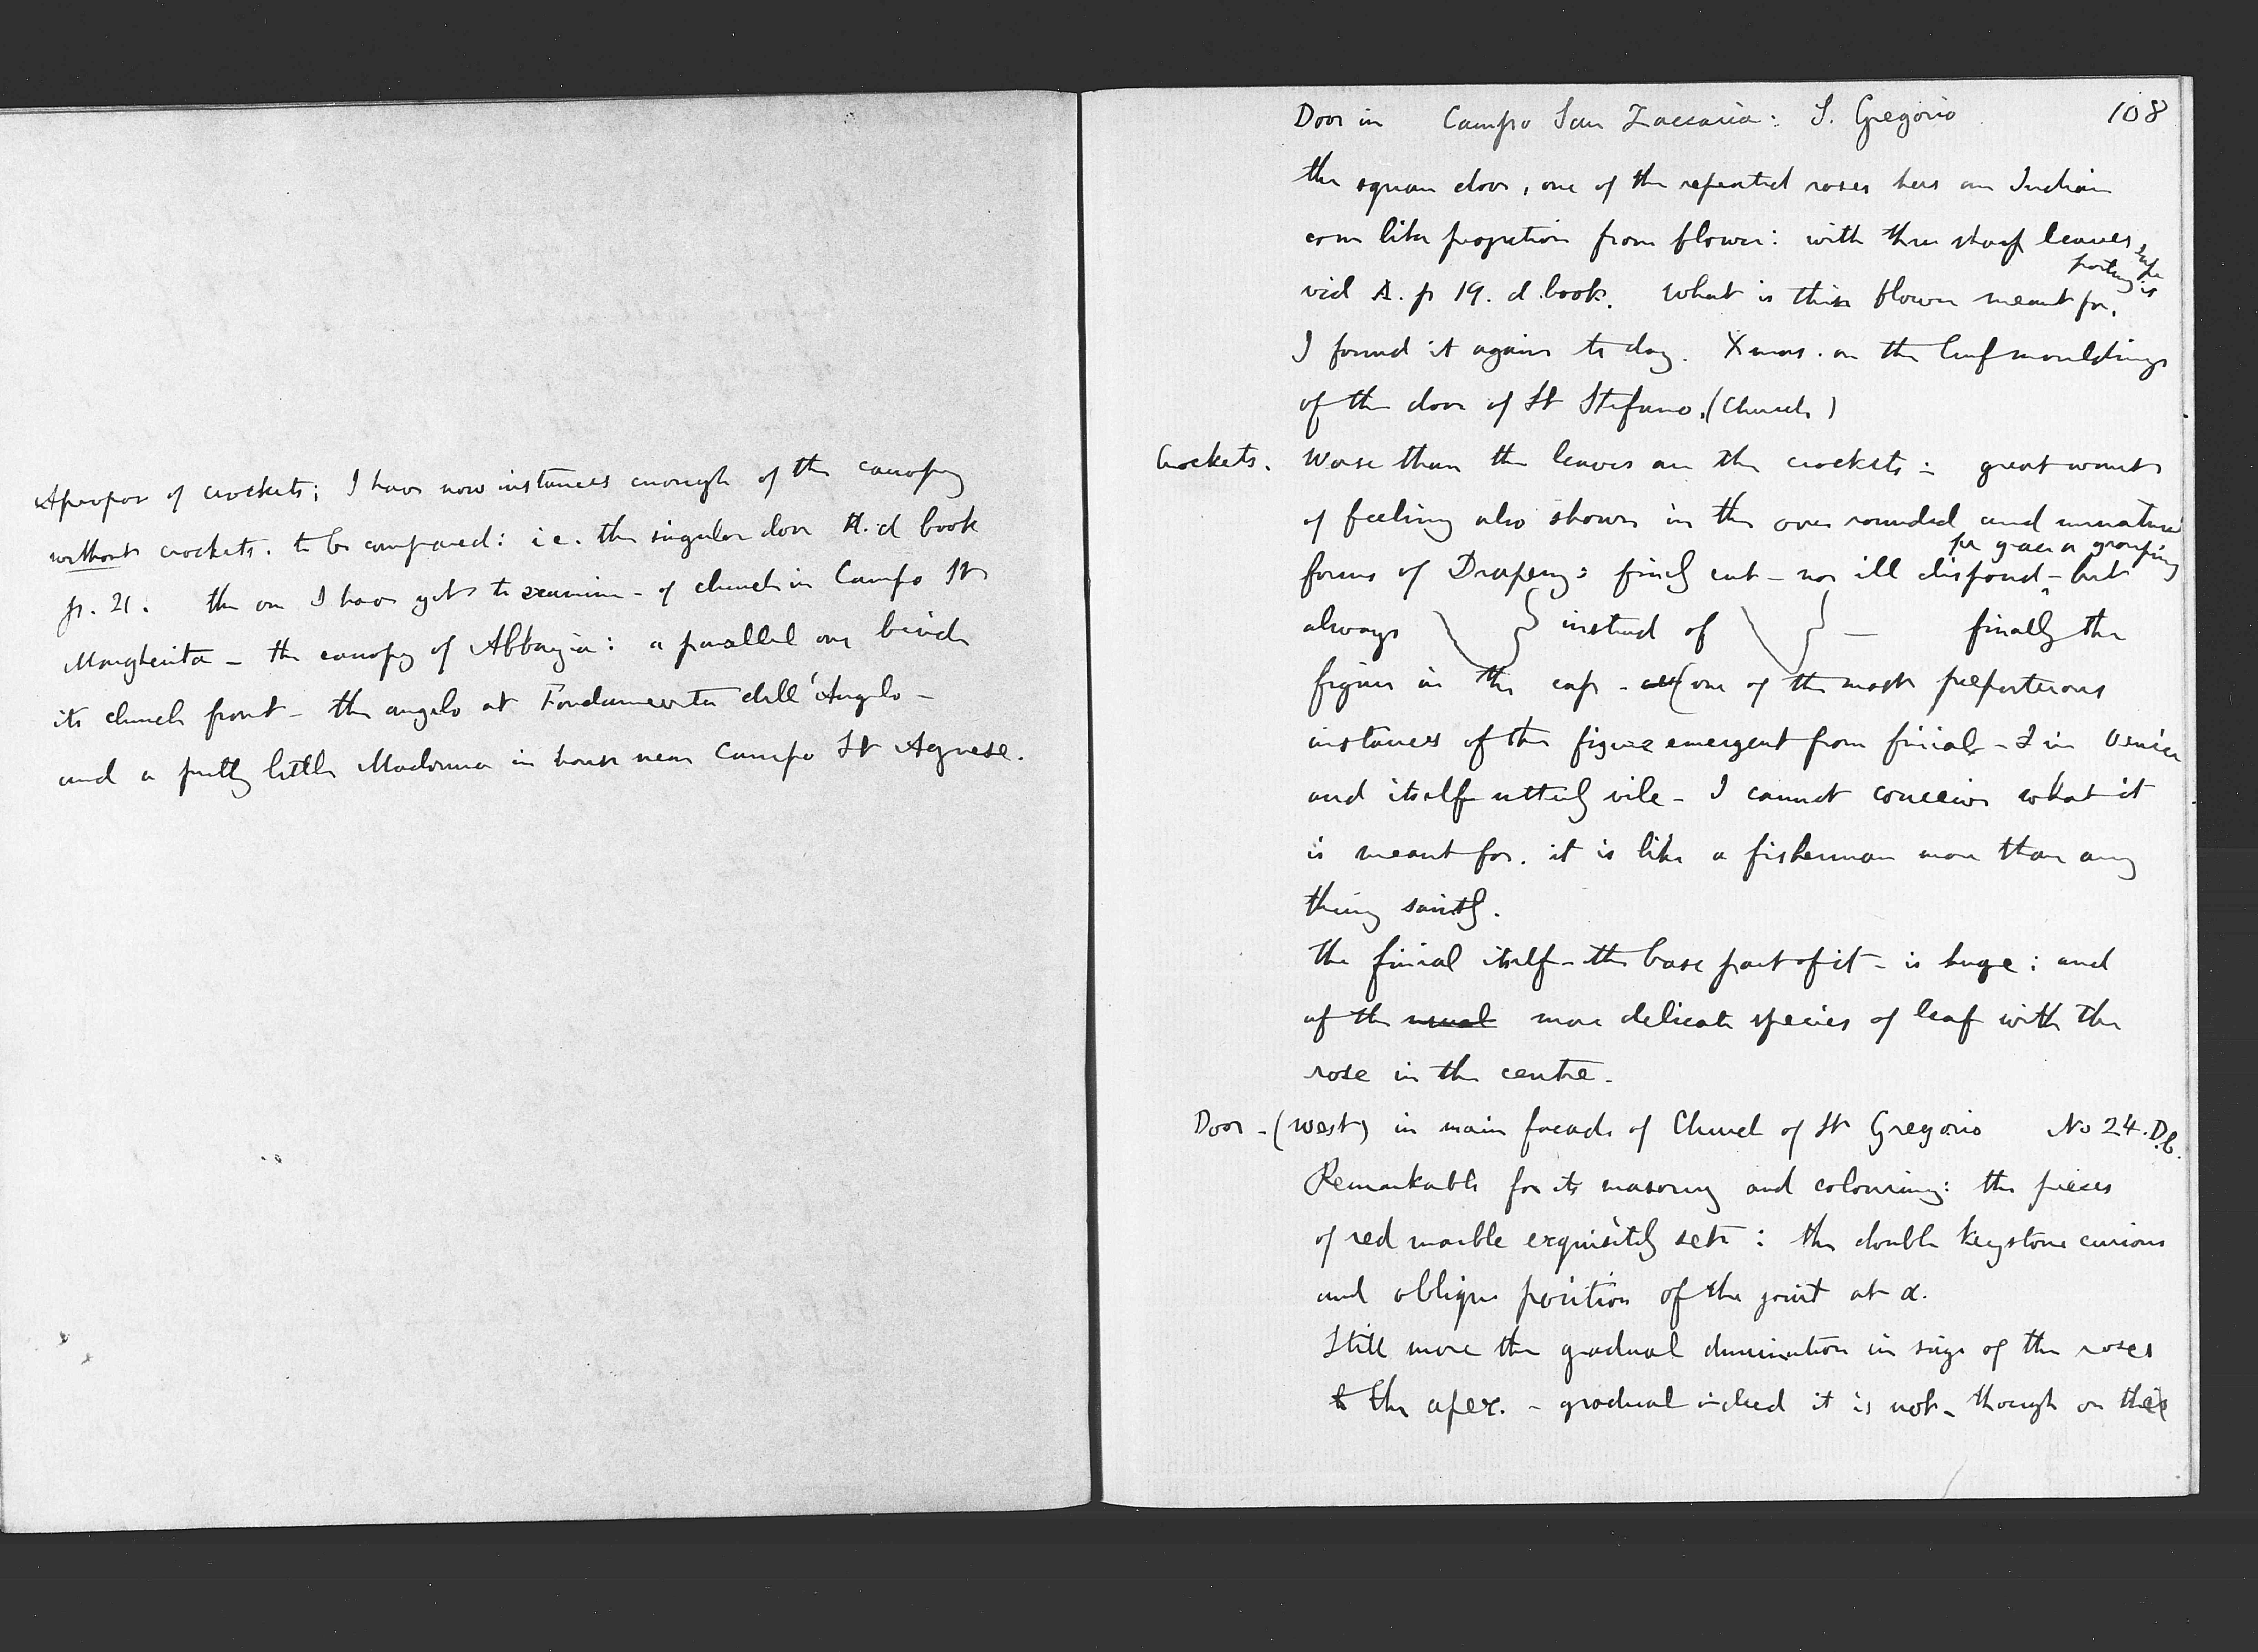 Apropos of crockets; I have now instances enough of the canopy
without crockets. to be compared: i.e. the singular door A. d book
p. 21. the one I have yet to examine - of church in Campo St
Margherita - the canopy of Abbazia: a parallel one beside
its church front - the angelo at Fondamenta dell 'Angelo -
and a pretty little Madonna in house near Campo St Agnese.
Door in Campo San Zaccaria: S. Gregorio 108
the square door, one of the repeated roses has an Indian
corn like projection from flower: with three sharp leaves,
porting is
vid A. p 19. d. book. What is this flower meant for.
I found it again to day. Xmas. on the leaf mouldings
of the door of St Stefano. (Church)
Crockets. Worse than the leaves are the crockets: great want
of feeling also shown in the over rounded and unnatural
for grace or grouping
forms of Drapery: finely cut - nor ill disposed - but
always instead of - finally the
figure in the cap - (one of the most preposterous
instances of the figure emergent from finials - I in Venice
and itself utterly vile - I cannot conceive what it
is meant for. it is like a fisherman more than any
thing saintly.
the finial itself - the base part of it - is huge: and
of the usual more delicate species of leaf with the
rose in the centre.
Door - (west) in main facade of Church of St Gregorio No 24. D.b.
Remarkable for its masonry and colouring: the pieces
of red marble exquisitely set: the double keystone curious
and oblique position of the joint at α.
Still more the gradual diminution in size of the roses
to the apex. - gradual indeed it is not - though on the